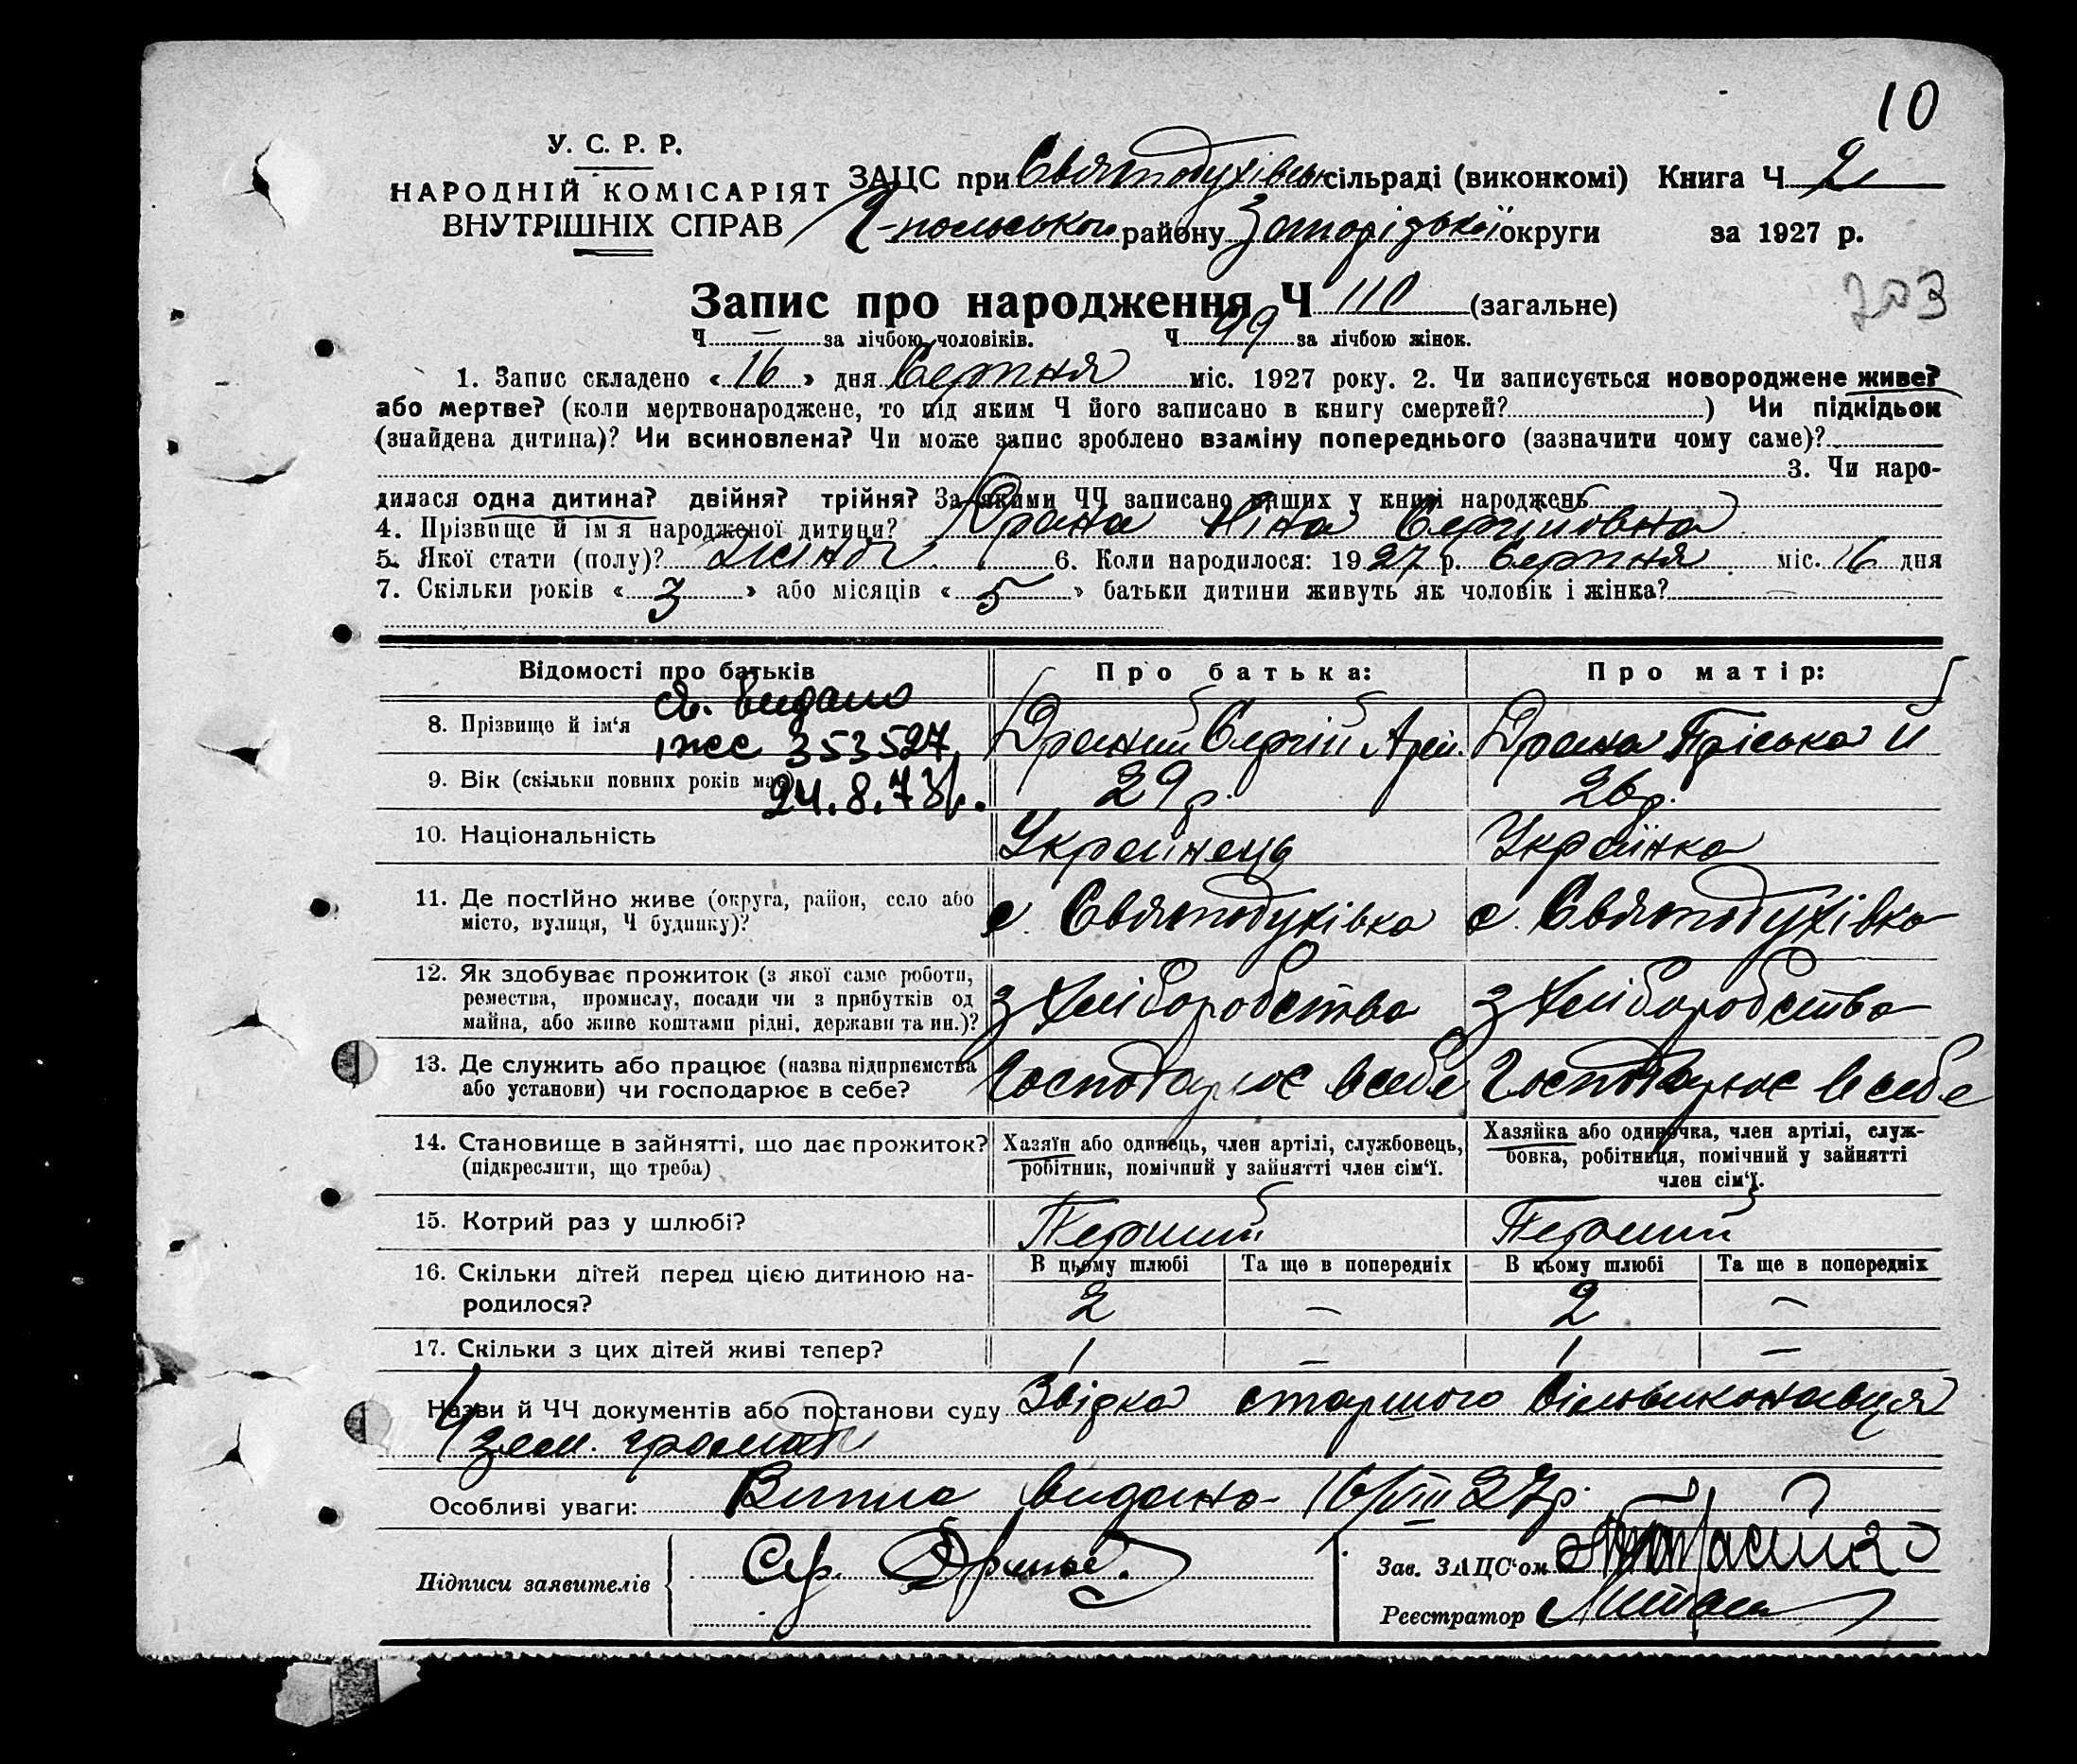 10
У. С. Р. Р.
НАРОДНІЙ КОМІСАРІЯТ
ВНУТРІШНІХ СПРАВ
ЗАЦС при Святодухівськ сільраді (виконкомі) Книга Ч 2
-польського району Запорізької округи за 1927 р.
Запис про народження Ч 110 (загальне)
Ч — за лічбою чоловіків. Ч 49 за лічбою жінок.
1. Запис складено «16» дня Серпня міс. 1927 року. 2. Чи записується новороджене живе?
або мертве? (коли мертвонароджене, то під яким Ч його записано в книгу смертей?) Чи підкідьок
(знайдена дитина)? Чи всиновлена? Чи може запис зроблено взаміну попереднього (зазначити чому саме)?
3. Чи наро-
дилася одна дитина? двійня? трійня? За якими ЧЧ записано инших у книзі народжень
4. Прізвище й ім'я народженої дитини? Драна Ніна Сергіївна
5. Якої стати (полу)? жіноч. 6. Коли народилося: 1927 р. Серпня міс. 16 дня
7. Скільки років «3» або місяців «5» батьки дитини живуть як чоловік і жінка? —
Відомості про батьків Про батька: Про матір:
св. видано
8. Прізвище й ім'я Драний Сергій Драна Пріська
353527
9. Вік (скільки повних років має) 29 р. 26 р.
24.8.73р.
10. Національність Українець Українка
11. Де постійно живе (округа, район, село або
місто, вулиця, Ч будинку)? с. Святодухівка с. Святодухівка
12. Як здобуває прожиток (з якої саме роботи,
ремества, промислу, посади чи з прибутків од
майна, або живе коштами рідні, держави та ин.)? з хліборобства з хліборобства
13. Де служить або працює (назва підприємства
або установи) чи господарює в себе? Господарює в себе Господарює в себе
14. Становище в зайнятті, що дає прожиток?
(підкреслити, що треба)
Хазяїн або одинець, член артілі, службовець,
робітник, помічний у зайнятті член сім'ї.
Хазяйка або одиночка, член артілі, служ-
бовка, робітниця, помічний у зайнятті
член сім'ї.
15. Котрий раз у шлюбі? Перший Перший
В цьому шлюбі Та ще в попередніх В цьому шлюбі Та ще в попередніх
16. Скільки дітей перед цією дитиною на-
родилося? 2 — 2 —
17. Скільки з цих дітей живі тепер? 1 — 1 —
Назви й ЧЧ документів або постанови суду Звідка старшого сільвиконавця
4 зем. громади
Особливі уваги: Випис видано 16/VIII 27р.
Підписи заявителів
Зав. ЗАЦС'ом
Реєстратор